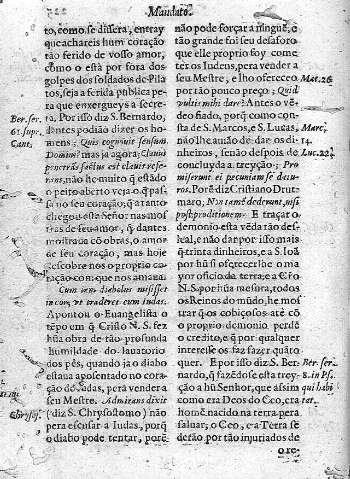 Mandato.
to, como se dissera, entray
que achareis hum coração
tão ferido de vosso amor,
como o està por fora dos
golpes dos soldados de Pila
tos, seja a ferida publica pe
ra que enxergueys a secre-
ta. Por isso diz S. Bernardo,
dantes podião dizer os ho-
mens; Quis cognouit sensum
Domini? mas ja agora; Clauis
penetrãs factus est clauis rese-
rans, não he muito q̃ estãdo
o peito aberto veja o q̃ pas-
sa no seu coração, q̃ a tanto
chegou este Señor nas mos
tras de seu amor, q̃ dantes
mostraua cõ obras, o amor
de seu coração, mas hoje
descobre nos o proprio co-
ração com que nos amaua.
Cum iam diabolus misisset
in cor, vt traderet eum Iudas.
Apontou o Euangelista o
tẽpo em q̃ Cristo N. S. fez
hũa obra de tão profunda
humildade do lauatorio
dos pés, quando ja o diabo
estaua aposentado no cora
ção de Iudas, pera vender a
seu Mestre. Admirans dixit
(diz S. Chrysostomo) não
pera escusar a Iudas, porq̃
o diabo pode tentar, porẽ
Ber. ser.
61. supr.
Cant.
Chrys.
não pode forçar a ninguẽ, e
tão grande foi seu desaforo
que elle proprio foy come
ter os Iudeus, pera vender a
seu Mestre, e lho offereceo
por tão pouco preço; Quid
vultis mihi dare? Antes o vẽ-
deo fiado, porq̃ como con-
sta de S. Marcos, e S. Lucas,
não lhe auião de dar os di-
nheiros, senão despois de
concluyda a treyção; Pro
miserunt ei pecuniam se datu-
ros. Porẽ diz Cristiano Drut-
maro, Non tamẽ dederunt, nisi
post proditionem. E traçar o
demonio esta vẽda tão des-
leal, e não dar por isso mais
q̃ trinta dinheiros, e a S. Ioã
por hũ si offerecerlhe o ma
yor officio da terra, e a Cr̃o
N. S. por hũa mesura, todos
os Reinos do mũdo, he mos
trar q̃ os cobiçosos atè cõ
o proprio demonio perdẽ
o credito, e q̃ por qualquer
interesse os faz fazer quãto
quer. E por isso diz S. Ber-
nardo, q̃ fazẽdose esta trey-
ção a hũ Senhor, que assim
como era Deos do Ceo, era
homẽ nacido na terra pera
saluar; o Ceo, e a Terra se
derão por tão injuriados de
o re-
Mat. 26
Marc.
14.
Luc. 22.
Ber. ser.
8. in Ps.
qui habi
tat.